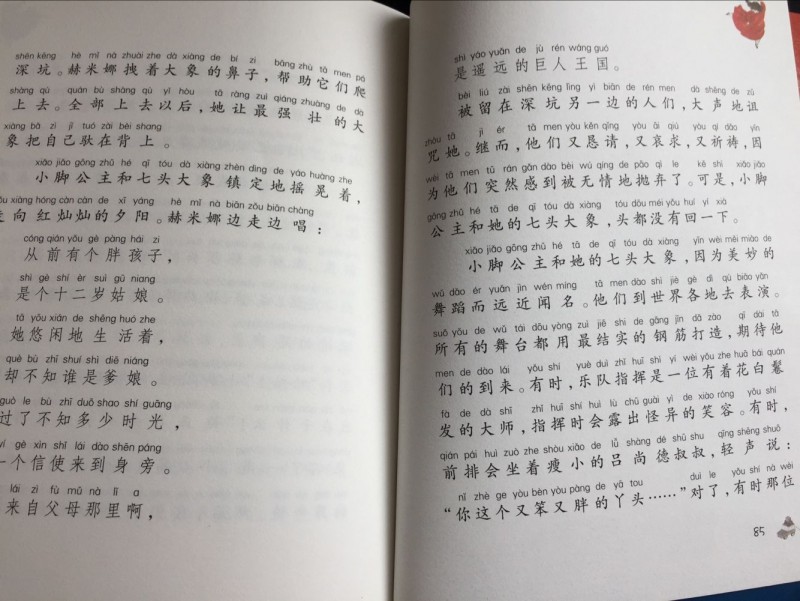 shēn kēng hè mǐ nà zhuài zhe dà xiàng de bí zi bāng zhù tā men pá
深坑。赫米娜拽着大象的鼻子，帮助它们爬
shàng qù quán bù shàng qù yǐ hòu tā ràng zuì qiáng zhuàng de dà
上去。全部上去以后，她让最强壮的大
xiàng bǎ zì jǐ tuó zài bèi shang
象把自己驮在背上。
xiǎo jiǎo gōng zhǔ hé qī tóu dà xiàng zhèn dìng de yáo huàng zhe
小脚公主和七头大象镇定地摇晃着，
hóng càn càn de xī yáng hè mǐ nà biān zǒu biān chàng
走向红灿灿的夕阳。赫米娜边走边唱：
cóng qián yǒu gè pàng hái zi
从前有个胖孩子，
shì gè shí èr suì gū niang
是个十二岁姑娘。
tā yōu xián de shēng huó zhe
她悠闲地生活着，
què bù zhī shuí shì diē niáng
却不知谁是爹娘。
guò le bù zhī duō shao shí guāng
过了不知多少时光，
yí gè xìn shǐ lái dào shēn páng
一个信使来到身旁。
lái zì fù mǔ nà lǐ a
来自父母那里啊，
shì yáo yuǎn de jù rén wáng guó
是遥远的巨人王国。
bèi liú zài shēn kēng lìng yì biān de rén men dà shēng de zǔ
被留在深坑另一边的人们，大声地诅
zhòu tā jì ér tā men yòu kěn qǐng yòu āi qiú yòu qí dǎo yīn
咒她。继而，他们又恳请，又哀求，又祈祷，因
wèi tā men tū rán gǎn dào bèi wú qíng de pāo qì le kě shì xiǎo jiǎo
为他们突然感到被无情地抛弃了。可是，小脚
gōng zhǔ hé tā de qī tóu dà xiàng tóu dōu méi yǒu huí yí xià
公主和她的七头大象，头都没有回一下。
xiǎo jiǎo gōng zhǔ hé tā de qī tóu dà xiàng yīn wèi měi miào de
小脚公主和她的七头大象，因为美妙的
wǔ dǎo ér yuǎn jìn wén míng tā men dào shì jiè gè dì qù biǎo yǎn
舞蹈而远近闻名。他们到世界各地去表演。
suǒ yǒu de wǔ tái dōu yòng zuì jiē shi de gāng jīn dǎ zào qī dài tā
所有的舞台都用最结实的钢筋打造，期待他
men de dào lái yǒu shí yuè duì zhǐ huī shì yí wèi yǒu zhe huā bái quán
们的到来。有时，乐队指挥是一位有着花白鬈
fà de dà shī zhǐ huī shí huì lù chū guài yì de xiào róng yǒu shí
发的大师，指挥时会露出怪异的笑容。有时，
qián pái huì zuò zhe shòu xiǎo de lǚ shàng dé shū shu qīng shēng shuō
前排会坐着瘦小的吕尚德叔叔，轻声说：
nǐ zhè ge yòu bèn yòu pàng de yā tou duì le yǒu shí nà wèi
“你这个又笨又胖的丫头……”对了，有时那位
85